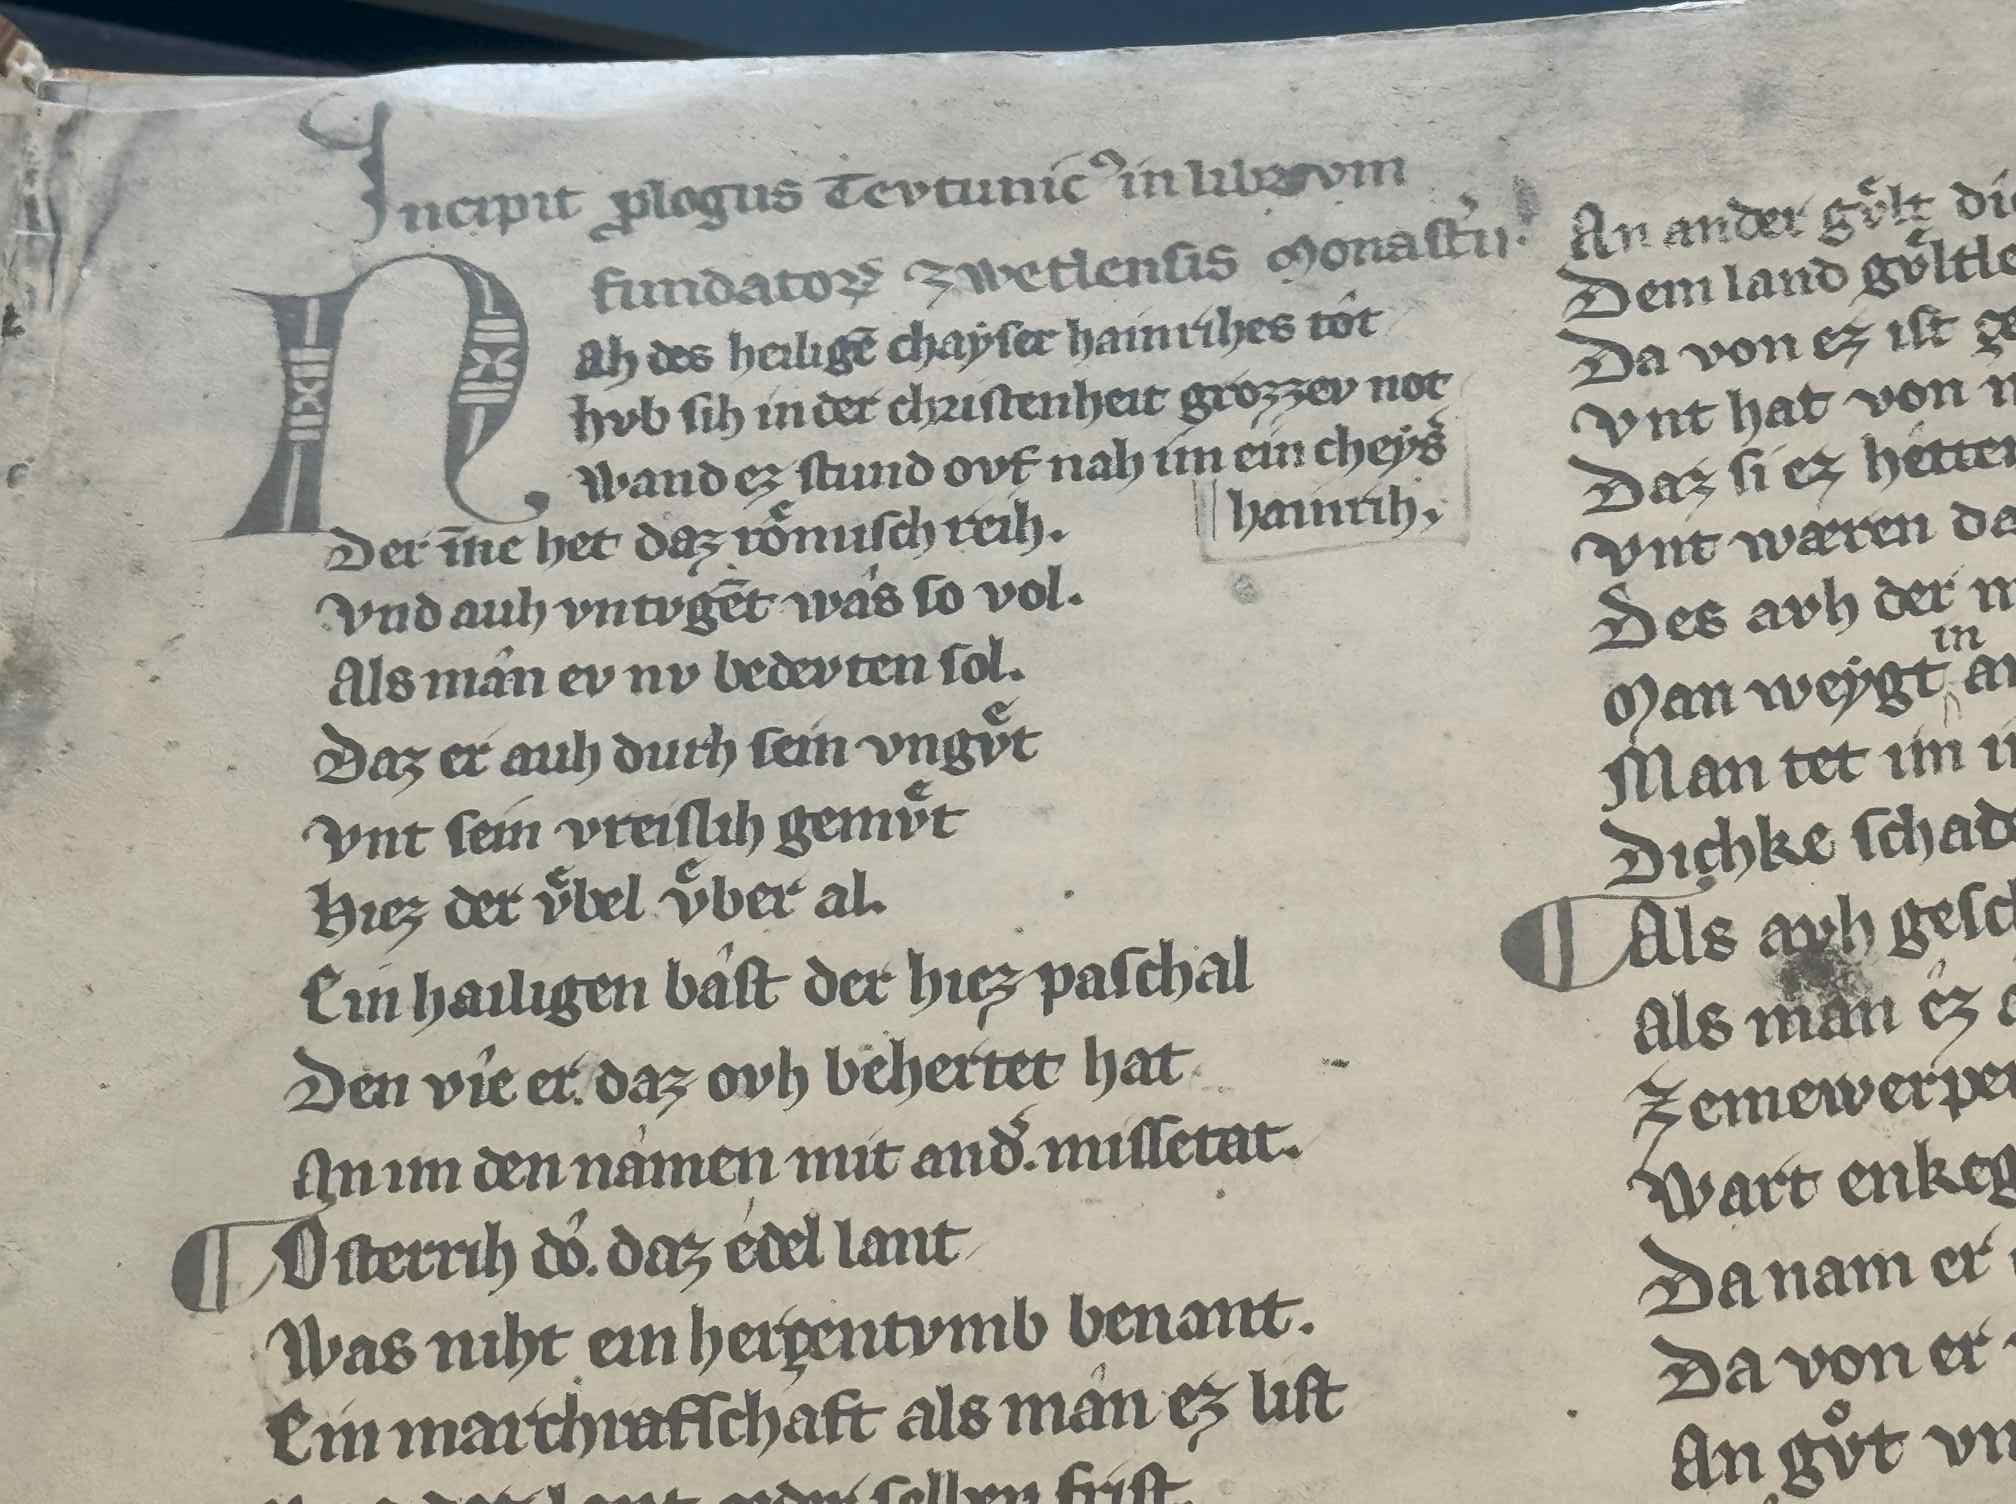 Incipit ꝓlogus Tevtunicꝰ in librvm
fundatoꝝ zwetlensis Monast'ii.
Nah des heiligē chaẏser hainrihes tôt
hvb sih in der christenheit grozzev not
Wand ez stund ovf nah im ein cheẏs͛
hainrih.
Der īne het daz roͤmisch reih.
Vnd auh vntvgēt wa͛s so vol.
Als mán ev nv bedevten sol.
Daz er auh durh sein vngvͤt
Vnt sein vreislih gemvͤt
Hiez der vͤbel vͤber al.
Ein hailigen bábst der hiez paschal
Den vie er. daz ovh behertet hat
An im den námen mit and͛. missetat.
¶ Osterrih dó. daz édel lant
Was niht ein herzentvmb benant.
Ein marchrafschaft als mán ez list
selben frist.
An ander gvͤlt
Dem land
Da von ez ist
Vnt hat von
Daz si ez hetten
Vnt wæren
Des avh der
in
Man weẏgt
Man tet im
Dichke
¶ Als avh
Als mán éz
Zemewerper
Wart
Da nam er
Da von er
An gvͦt